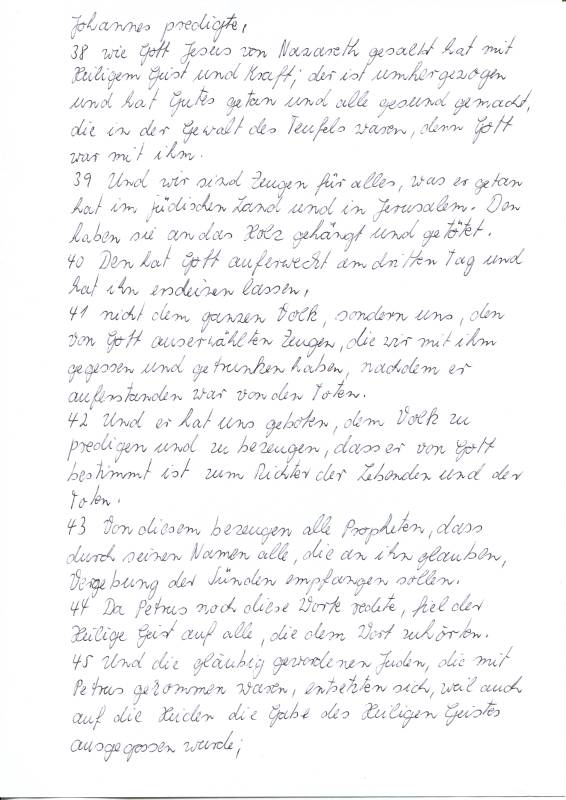 Johannes predigte,
38 wie Gott Jesus von Nazareth gesalbt hat mit
Heiligem Geist und Kraft; der ist umhergezogen
und hat Gutes getan und alle gesund gemacht,
die in der Gewalt des Teufels waren, denn Gott
war mit ihm.
39 Und wir sind Zeugen für alles, was er getan
hat im jüdischen Land und in Jerusalem. Den
haben sie an das Holz gehängt und getötet.
40 Den hat Gott auferweckt am dritten Tag und
hat ihn erscheinen lassen,
41 nicht dem ganzen Volk, sondern uns, den
von Gott auserwählten Zeugen, die wir mit ihm
gegessen und getrunken haben, nachdem er
auferstanden war von den Toten.
42 Und er hat uns geboten, dem Volk zu
predigen und zu bezeugen, dass er von Gott
bestimmt ist zum Richter der Lebenden und der
Toten.
43 Von diesem bezeugen alle Propheten, dass
durch seinen Namen alle, die an ihn glauben,
Vergebung der Sünden empfangen sollen.
44 Da Petrus noch diese Worte redete, fiel der
Heilige Geist auf alle, die dem Wort zuhörten.
45 Und die gläubig gewordenen Juden, die mit
Petrus gekommen waren, entsetzten sich, weil auch
auf die Heiden die Gabe des Heiligen Geistes
ausgegossen wurde;